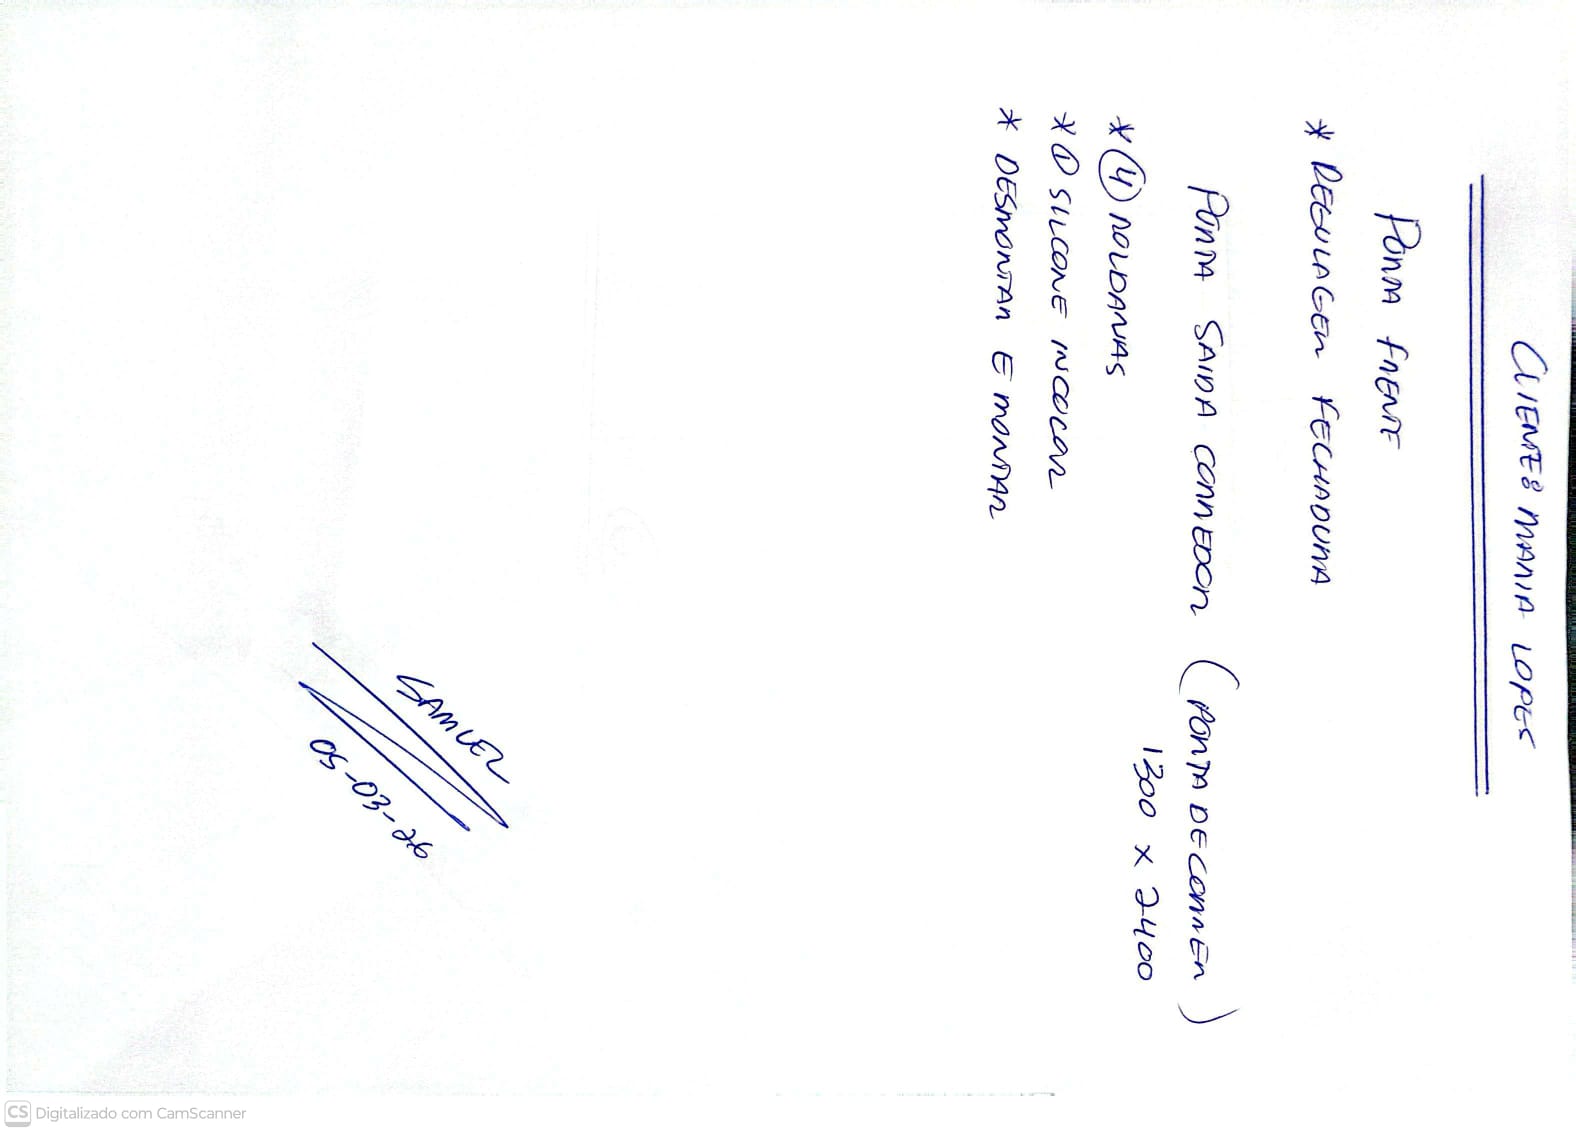 CLIENTE: MARIA LOPES
PORTA FRENTE
* REGULAGEM FECHADURA
PORTA SAIDA CORREDOR (PORTA DE CORRER)
1300 x 2400
* 4 ROLDANAS
* 1 SILCONE INCOLOR
* DESMONTAR E MONTAR
SAMUEL
05-03-26
CS Digitalizado com CamScanner